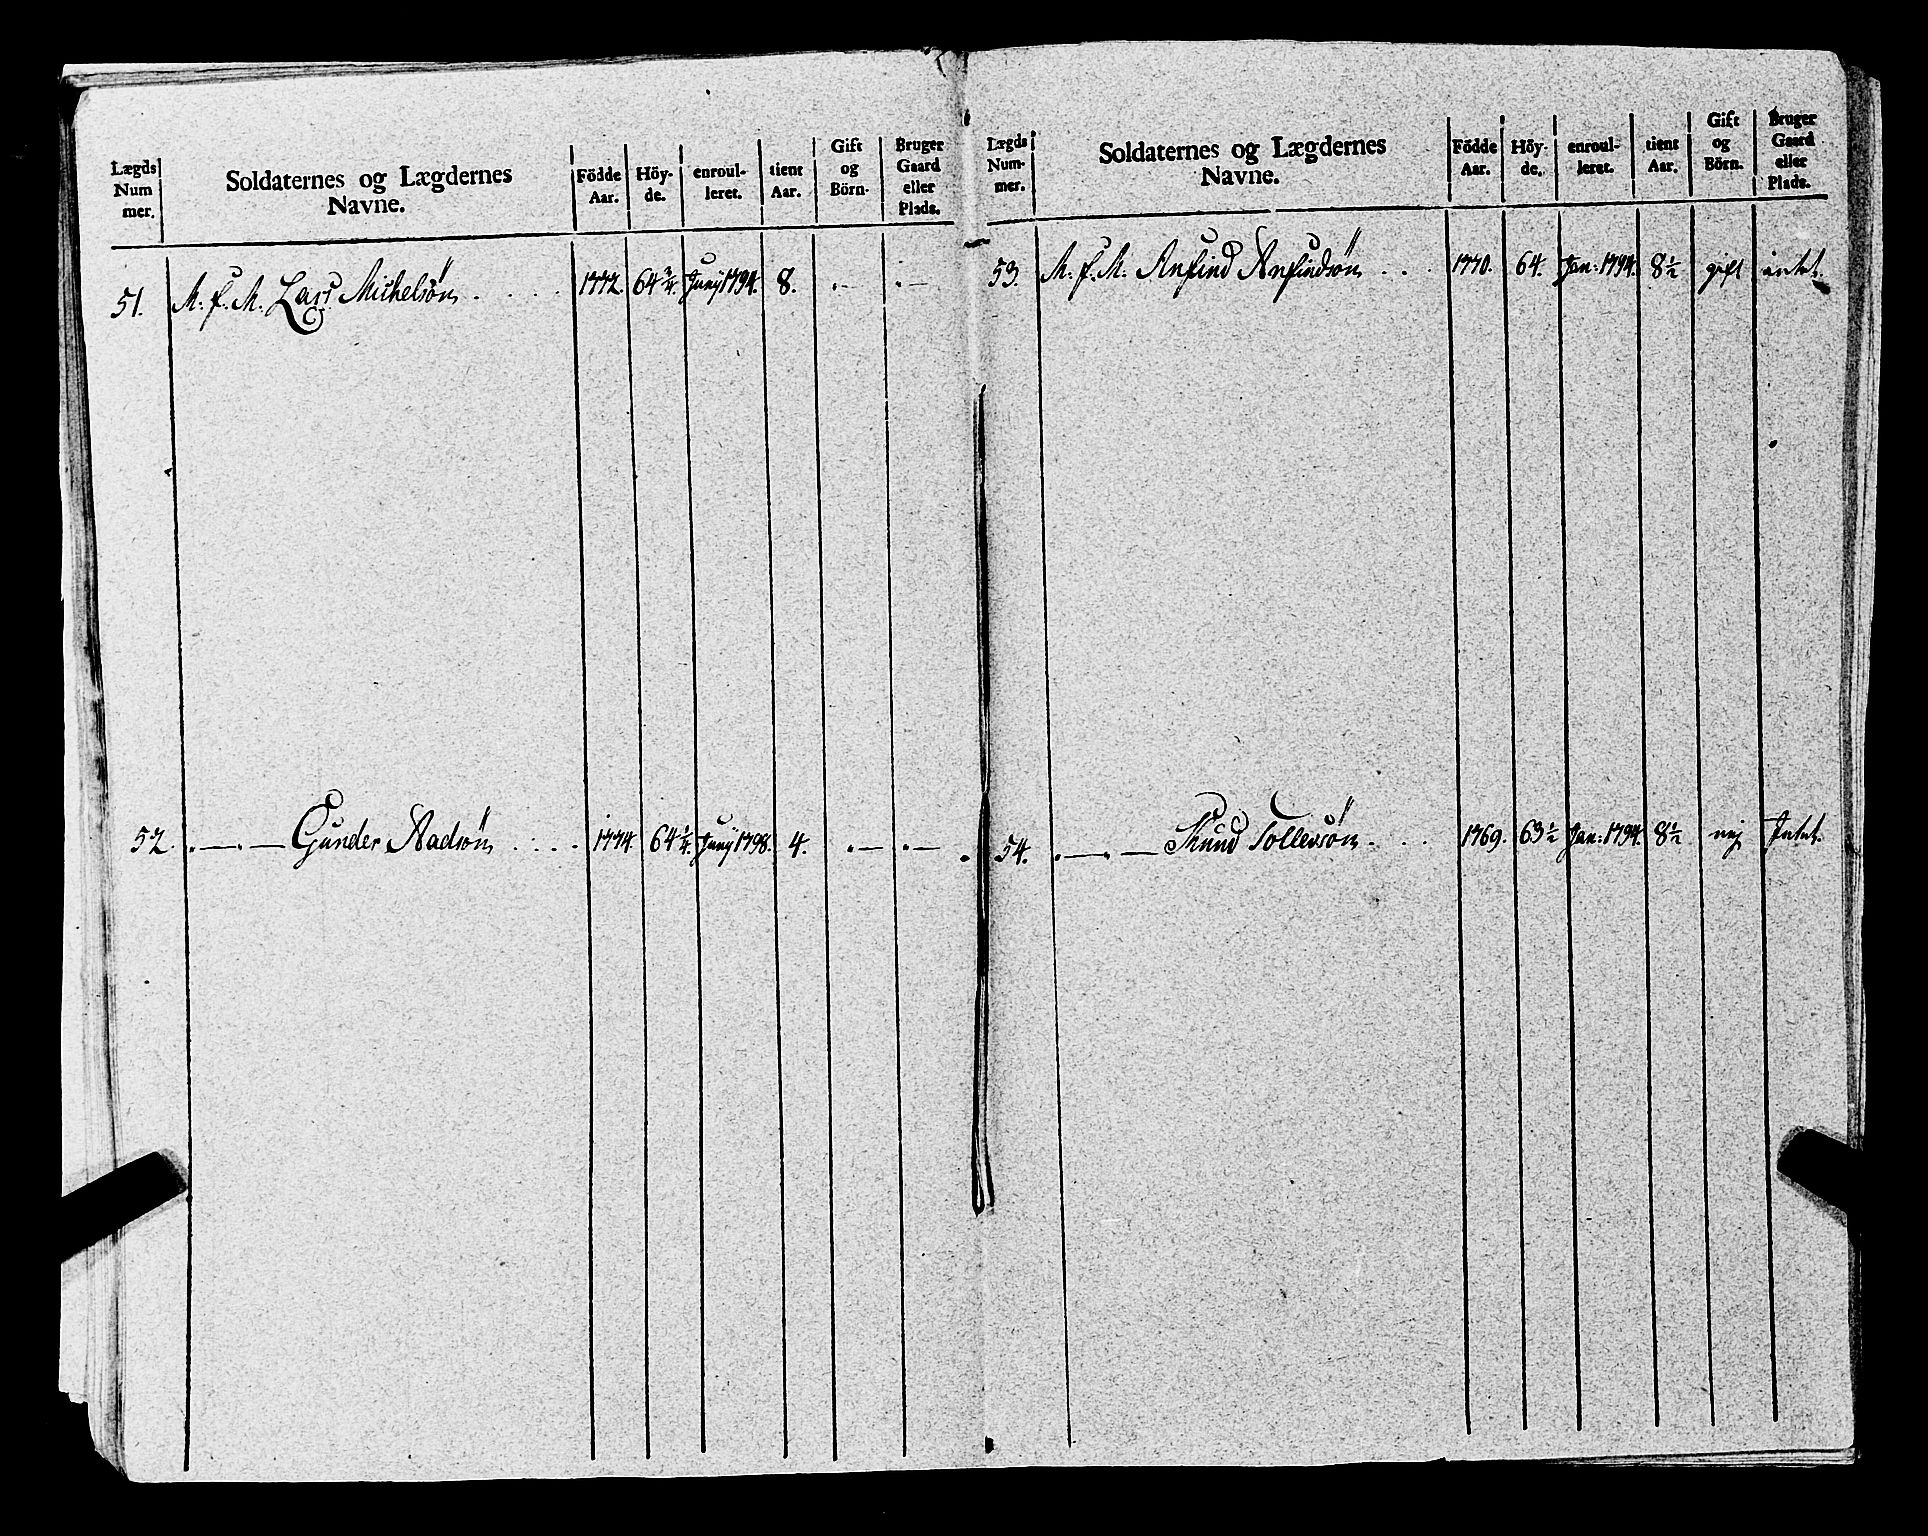 Lægds Num mer. | Soldaternes og Lægdernes Navne. | Födde Aar. | Höy- de. | enroul- leret. | tient Aar. | Gift og Börn. | Bruger Gaard eller Plads.
51. | M. f. M. Lars Michelsön . . . . | 1772. | 64 3/4. | Junÿ 1794. | 8. | . — | . —
52. | . — . — Gunder Aadsön . . . . | 1774. | 64 1/4. | Junÿ 1798. | 4. | . — | . —
Lægds Num- mer. | Soldaternes og Lægdernes Navne. | Födde Aar. | Höy- de. | enroul- leret. | tient Aar. | Gift og Börn. | Bruger Gaard eller Plads.
53. | M. f. M. Anfind Anfindsön . . . | 1770. | 64. | Jan: 1794. | 8 1/2 | gift | intet.
54. | . — . — Knud Tollevsön . . . | 1769. | 63 1/2 | Jan: 1794. | 8 1/2 | nej | Intet.